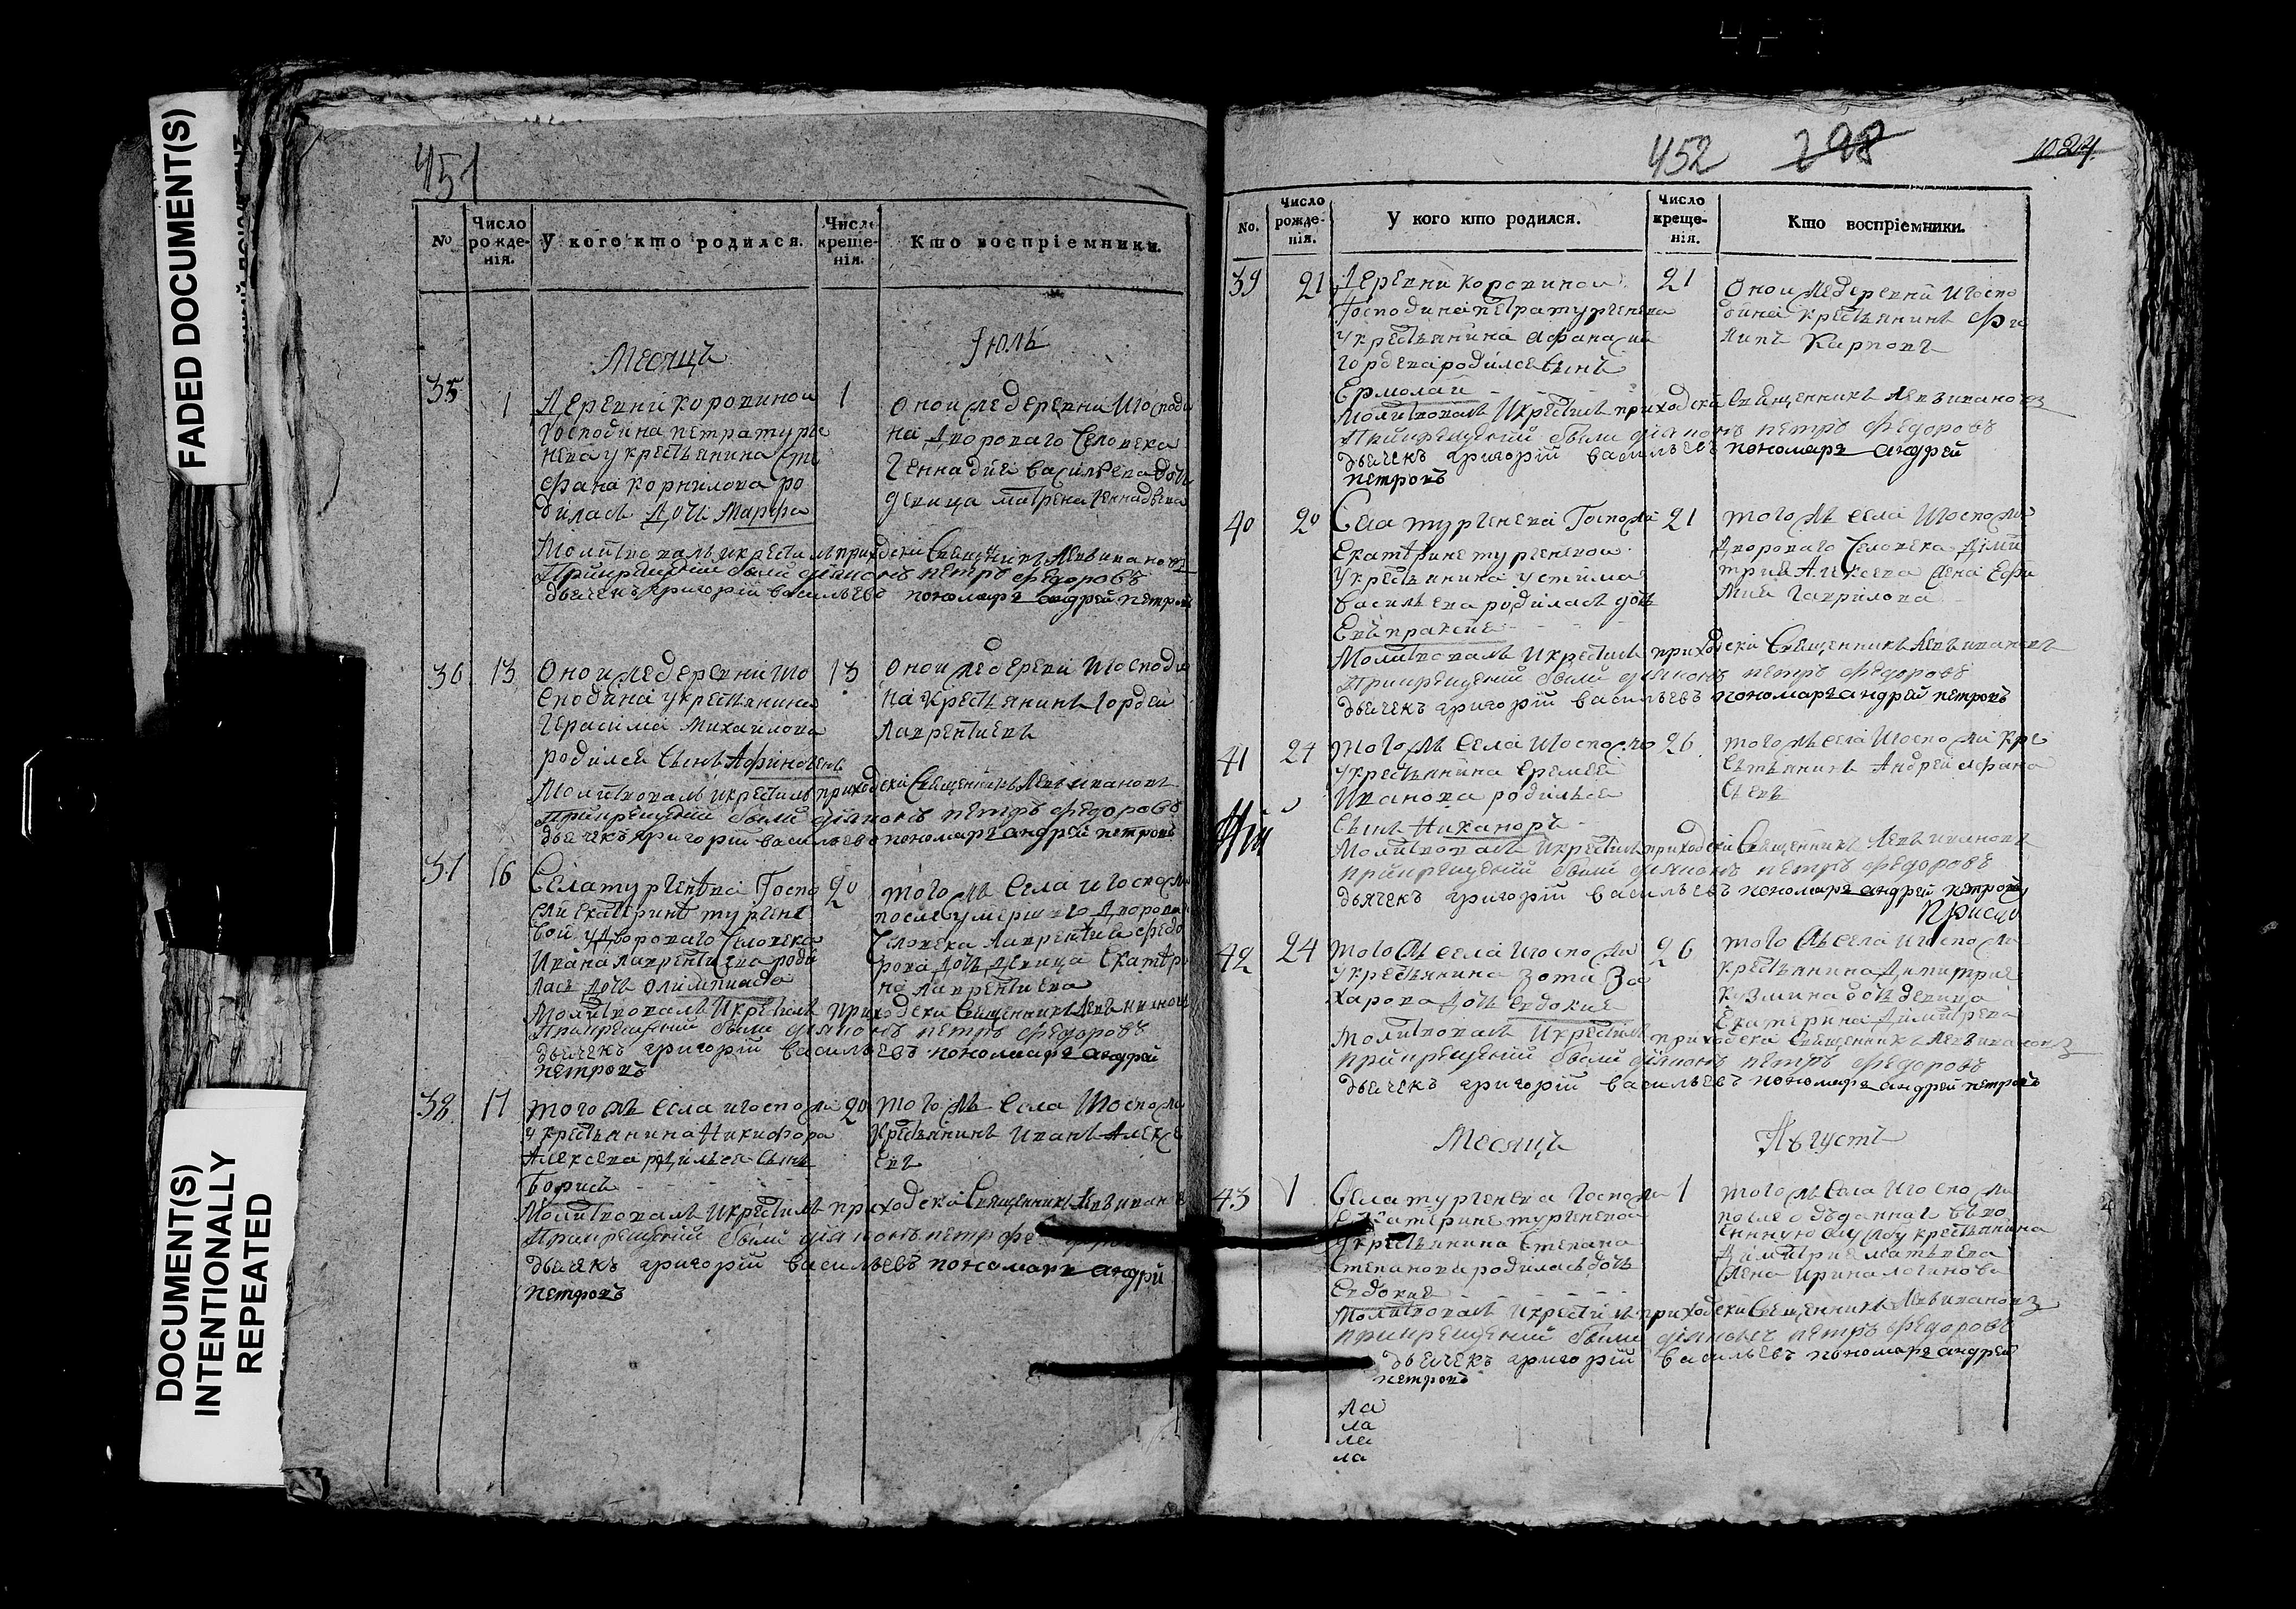 FADED DOCUMENT(S)
DOCUMENT(S)
INTENTIONALLY
REPEATED
451
No
Число рожденія.
У кого кто родился.
Число крещенія.
Кто воспріемники.
Месяцъ
Іюль
35
1
Деревни коровиной
господина петра турге
нева у крестьянина сте
фана корнилова ро
дилась дочь Марфа
1
Оной же деревни и господи
на дворового человека
Геннадия васильева дочь
девица матрена геннадьева
Молитвовалъ и крестилъ приходски священникъ Левъ иванов
При крещении были диаконъ петръ федоровъ
дьячекъ григорий васильевъ пономарь андрей петровъ
36
13
Оной же деревни и го
сподина у крестьянина
герасима михайлова
родился сынъ Афиногенъ
13
Оной же деревни и господи
на крестьянинъ гордей
лаврентиевъ
Молитвовалъ и крестилъ приходски священникъ Левъ ивановъ
При крещении были диаконъ петръ федоровъ
дьячекъ григорий васильевъ пономарь андрей петровъ
37
16
Села тургенева Госпо
жи екатерины тургене
вой у дворового человека
Ивана лаврентиева роди
лась дочь олимпиада
20
того жъ села и госпожи
после умершего дворова
человека лаврентия федо
рова дочь девица Екатери
на лаврентиева
Молитвовалъ и крестилъ приходски священникъ Левъ иванов
При крещении были диаконъ петръ федоровъ
дьячекъ григорий васильевъ пономарь андрей
петровъ
38
17
того жъ села и госпожи
у крестьянина Никифора
Алексева родился сынъ
Борисъ
20
того жъ села и госпожи
крестьянинъ иванъ алексе
евъ
Молитвовалъ и крестилъ приходски священникъ Левъ иванов
При крещении были диаконъ петръ
дьячекъ григорий васильевъ пономарь андрй
петровъ
452
298
1024
No.
Число рожденія.
У кого кто родился.
Число крещенія.
Кто воспріемники.
39
21
Деревни коровиной
господина петра тургенева
у крестьянина афанасия
гордева родился сынъ
Ермолай
21
Оной же деревни и госпо
дина крестьянинъ фи
липъ Карповъ
Молитвовалъ и крестилъ приходски священникъ Левъ иванов
При крещении были диаконъ петръ федоровъ
дьячекъ григорий васильевъ пономарь андрей
петровъ
40
20
Села тургенева Госпожи
Екатерине тургеневой
у крестьянина устима
васильева родилась дочь
Евпраксие
21
того жъ села и госпожи
дворового человека дими
трия Алексева жена Ефи
мия гаврилова
Молитвовалъ и крестилъ приходски священникъ Левъ ивановъ
При крещении были диаконъ петръ федоровъ
дьячекъ григорий васильевъ пономарь андрей петровъ
41
24
того жъ села и госпожи
у крестьянина еремея
Иванова родился
сынъ Никаноръ
26
того жъ села и госпожи кре
стьянинъ Андрей афана
сьевъ
Молитвовалъ и крестилъ приходски священникъ Левъ ивановъ
При крещении были диаконъ петръ федоровъ
дьячекъ григорий васильевъ пономарь андрей петровъ
42
24
того жъ села и госпожи
у крестьянина Зота За
харова дочь евдокие
26
того жъ села и госпожи
крестьянина димитрие
кузмина дочь девица
Екатерина димитрева
Молитвовалъ и крестилъ приходски священникъ Левъ иванов
При крещении были диаконъ петръ федоровъ
дьячекъ григорий васильевъ пономарь андрей петровъ
Месяцъ
Августъ
43
1
Села тургенева Госпожи
Екатерине тургеневой
у крестьянина Степана
Степанова родилась дочь
Евдокие
1
того жъ села и госпожи
после отъданнаг въ во
енную службу крестьянина
димитрие матвеева
жена ирина логинова
Молитвовалъ и крестилъ приходски священникъ Левъ иванов
При крещении были диаконъ петръ федоровъ
дьячекъ григорий васильевъ пономарь андрей
петровъ
ла
ла
ла
ла